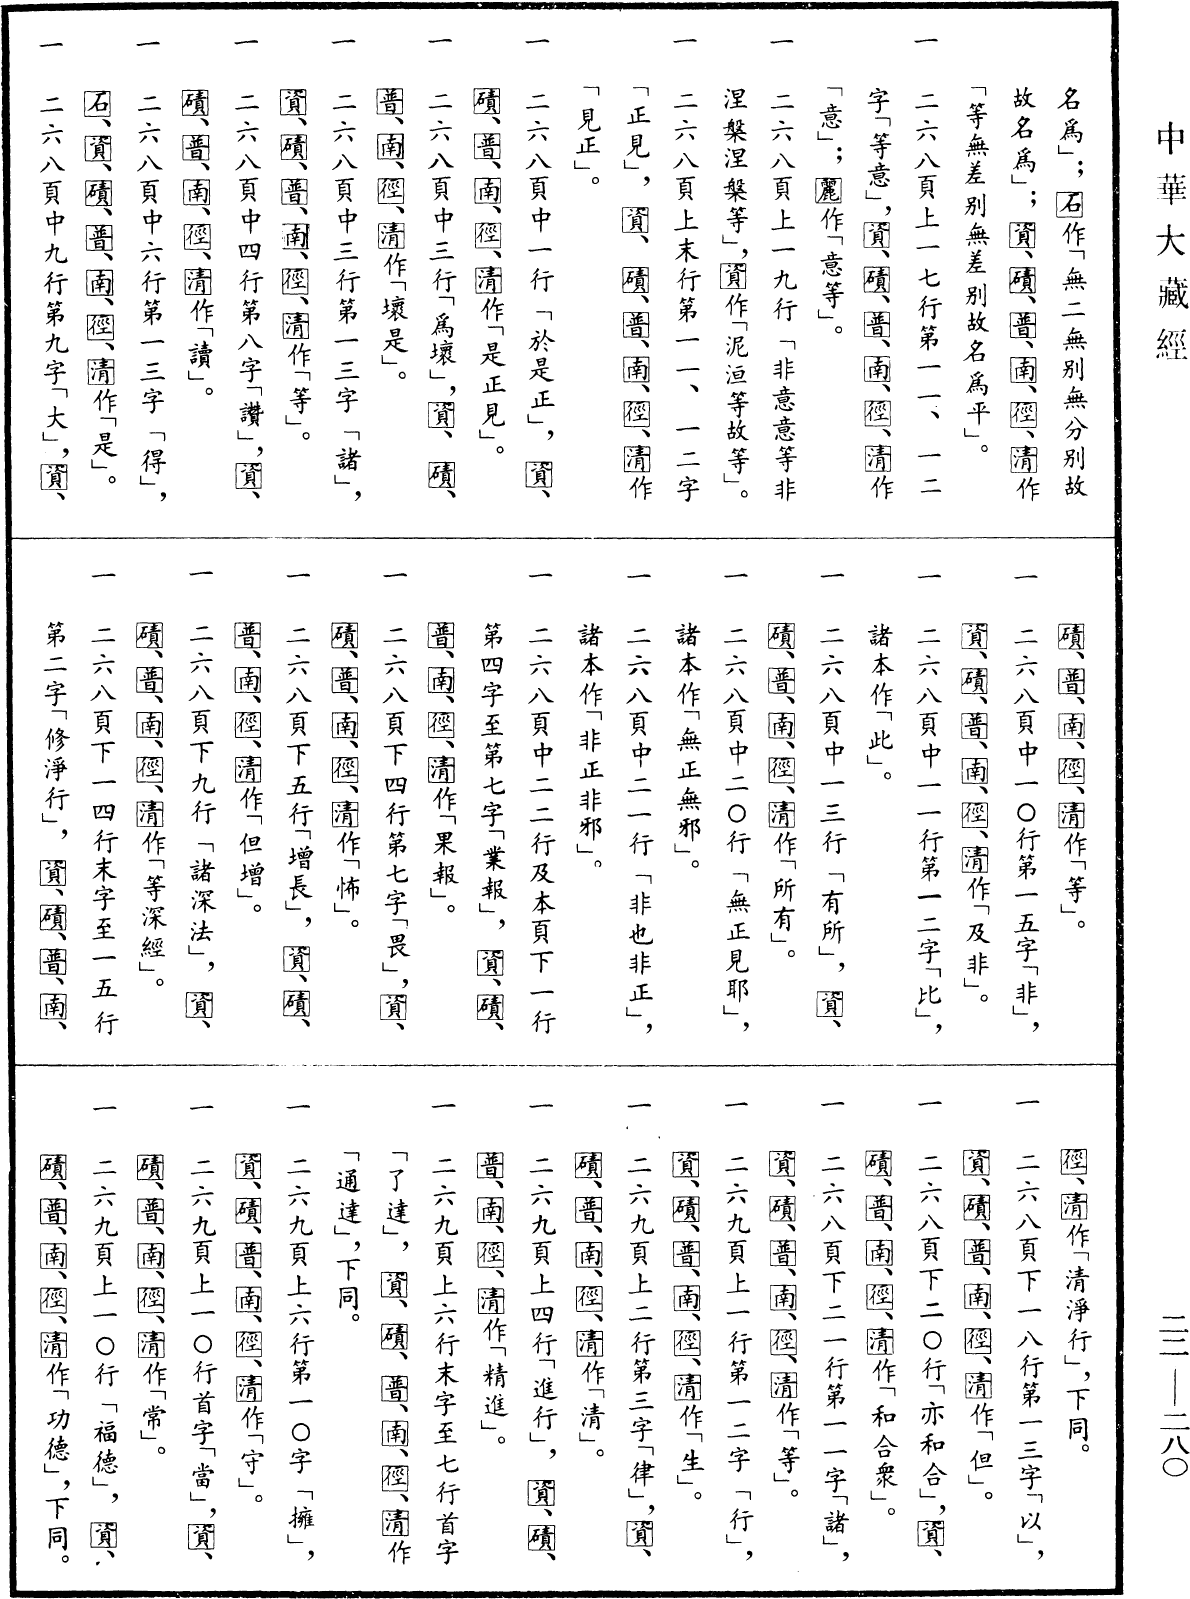 中華大藏經
二二——二八〇
名爲」；石作「無二無別無分別故
故名爲」；資、磧、普、南、徑、清作
「等無差別無差別故名爲平」。
一　二六八頁上一七行第一一、一二
字「等意」，資、磧、普、南、徑、清作
「意」；麗作「意等」。
一　二六八頁上一九行「非意意等非
涅槃涅槃等」，資作「泥洹等故等」。
一　二六八頁上末行第一一、一二字
「正見」，資、磧、普、南、徑、清作
「見正」。
一　二六八頁中一行「於是正」，資、
磧、普、南、徑、清作「是正見」。
一　二六八頁中三行「爲壞」，資、磧、
普、南、徑、清作「壞是」。
一　二六八頁中三行第一三字「諸」，
資、磧、普、南、徑、清作「等」。
一　二六八頁中四行第八字「讚」，資、
磧、普、南、徑、清作「讀」。
一　二六八頁中六行第一三字「得」，
石、資、磧、普、南、徑、清作「是」。
一　二六八頁中九行第九字「大」，資、
磧、普、南、徑、清作「等」。
一　二六八頁中一〇行第一五字「非」，
資、磧、普、南、徑、清作「及非」。
一　二六八頁中一一行第一二字「比」，
諸本作「此」。
一　二六八頁中一三行「有所」，資、
磧、普、南、徑、清作「所有」。
一　二六八頁中二〇行「無正見耶」，
諸本作「無正無邪」。
一　二六八頁中二一行「非也非正」，
諸本作「非正非邪」。
一　二六八頁中二二行及本頁下一行
第四字至第七字「業報」，資、磧、
普、南、徑、清作「果報」。
一　二六八頁下四行第七字「畏」，資、
磧、普、南、徑、清作「怖」。
一　二六八頁下五行「增長」，資、磧、
普、南、徑、清作「但增」。
一　二六八頁下九行「諸深法」，資、
磧、普、南、徑、清作「等深經」。
一　二六八頁下一四行末字至一五行
第二字「修淨行」，資、磧、普、南、
徑、清作「清淨行」，下同。
一　二六八頁下一八行第一三字「以」，
資、磧、普、南、徑、清作「但」。
一　二六八頁下二〇行「亦和合」，資、
磧、普、南、徑、清作「和合衆」。
一　二六八頁下二一行第一一字「諸」，
資、磧、普、南、徑、清作「等」。
一　二六九頁上一行第一二字「行」，
資、磧、普、南、徑、清作「生」。
一　二六九頁上二行第三字「律」，資、
磧、普、南、徑、清作「清」。
一　二六九頁上四行「進行」，資、磧、
普、南、徑、清作「精進」。
一　二六九頁上六行末字至七行首字
「了達」，資、磧、普、南、徑、清作
「通達」，下同。
一　二六九頁上六行第一〇字「擁」，
資、磧、普、南、徑、清作「守」。
一　二六九頁上一〇行首字「當」，資、
磧、普、南、徑、清作「常」。
一　二六九頁上一〇行「福德」，資、
磧、普、南、徑、清作「功德」，下同。